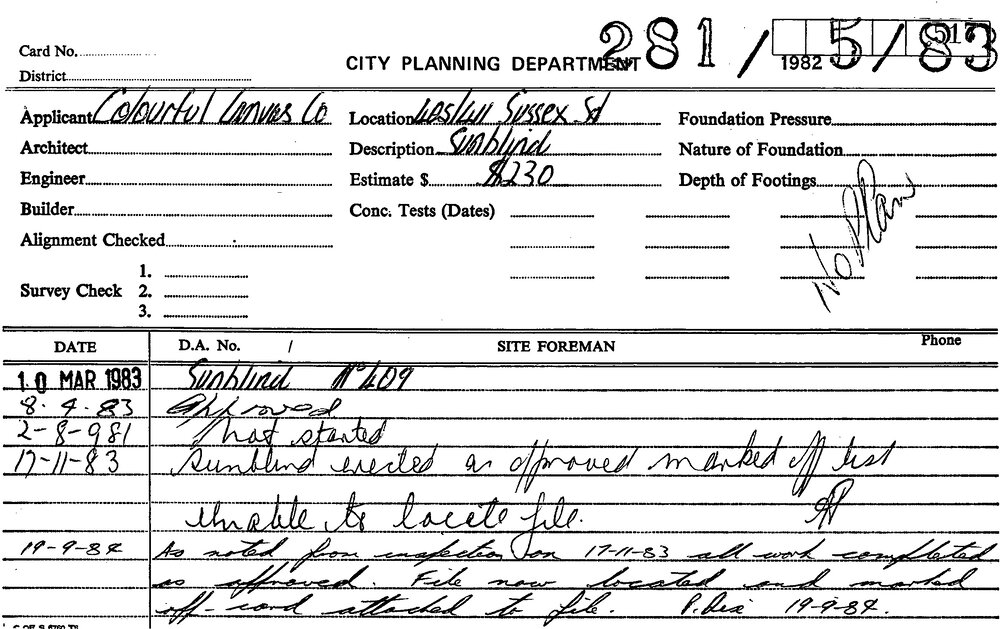 Card No.
District
CITY PLANNING DEPARTMENT
281/5/83
1982
517
Applicant Colourful Canvas Co
Location 405/411 Sussex St
Foundation Pressure
Architect
Description Sunblind
Nature of Foundation
Engineer
Estimate $ $230
Depth of Footings
Builder
Conc. Tests (Dates)
No Plan
Alignment Checked
1.
Survey Check 2.
3.
DATE D.A. No. / SITE FOREMAN Phone
10 MAR 1983 Sunblind No 409
8.4.83 Approved
2-8-981 not started
17-11-83 Sunblind erected as approved marked off list
Unable to locate file.
19-9-84 As noted from inspection on 17-11-83 all work completed
as approved. File now located and marked
off-card attached to file. 19-9-84.